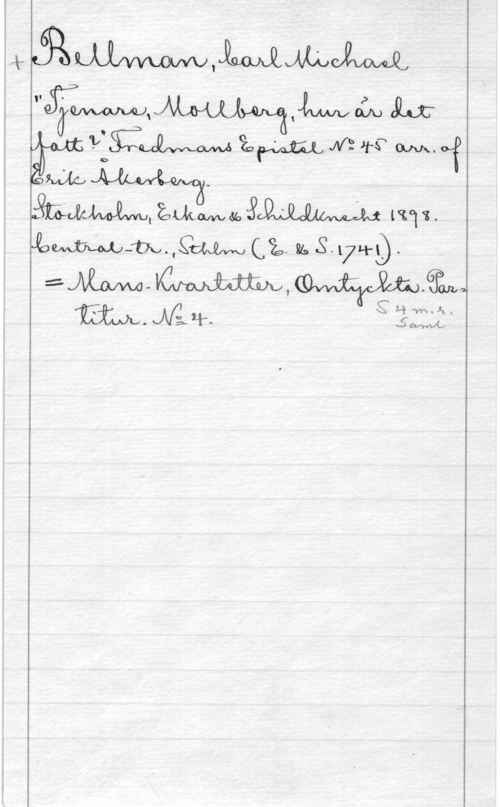 + Bellman, Carl Michael
"Tjenare, Mollberg, hur är det
fatt?" Fredmans Epistel No 45 arr. af
Erik Åkerberg.
Stockholm, Elkan & Schildknecht 1898.
Central-tr., Sthlm (E. & S. 1741).
= Mans-Kvartetter, Omtyckta. Par=
titur. No 4.
S 4 m.r.
Saml